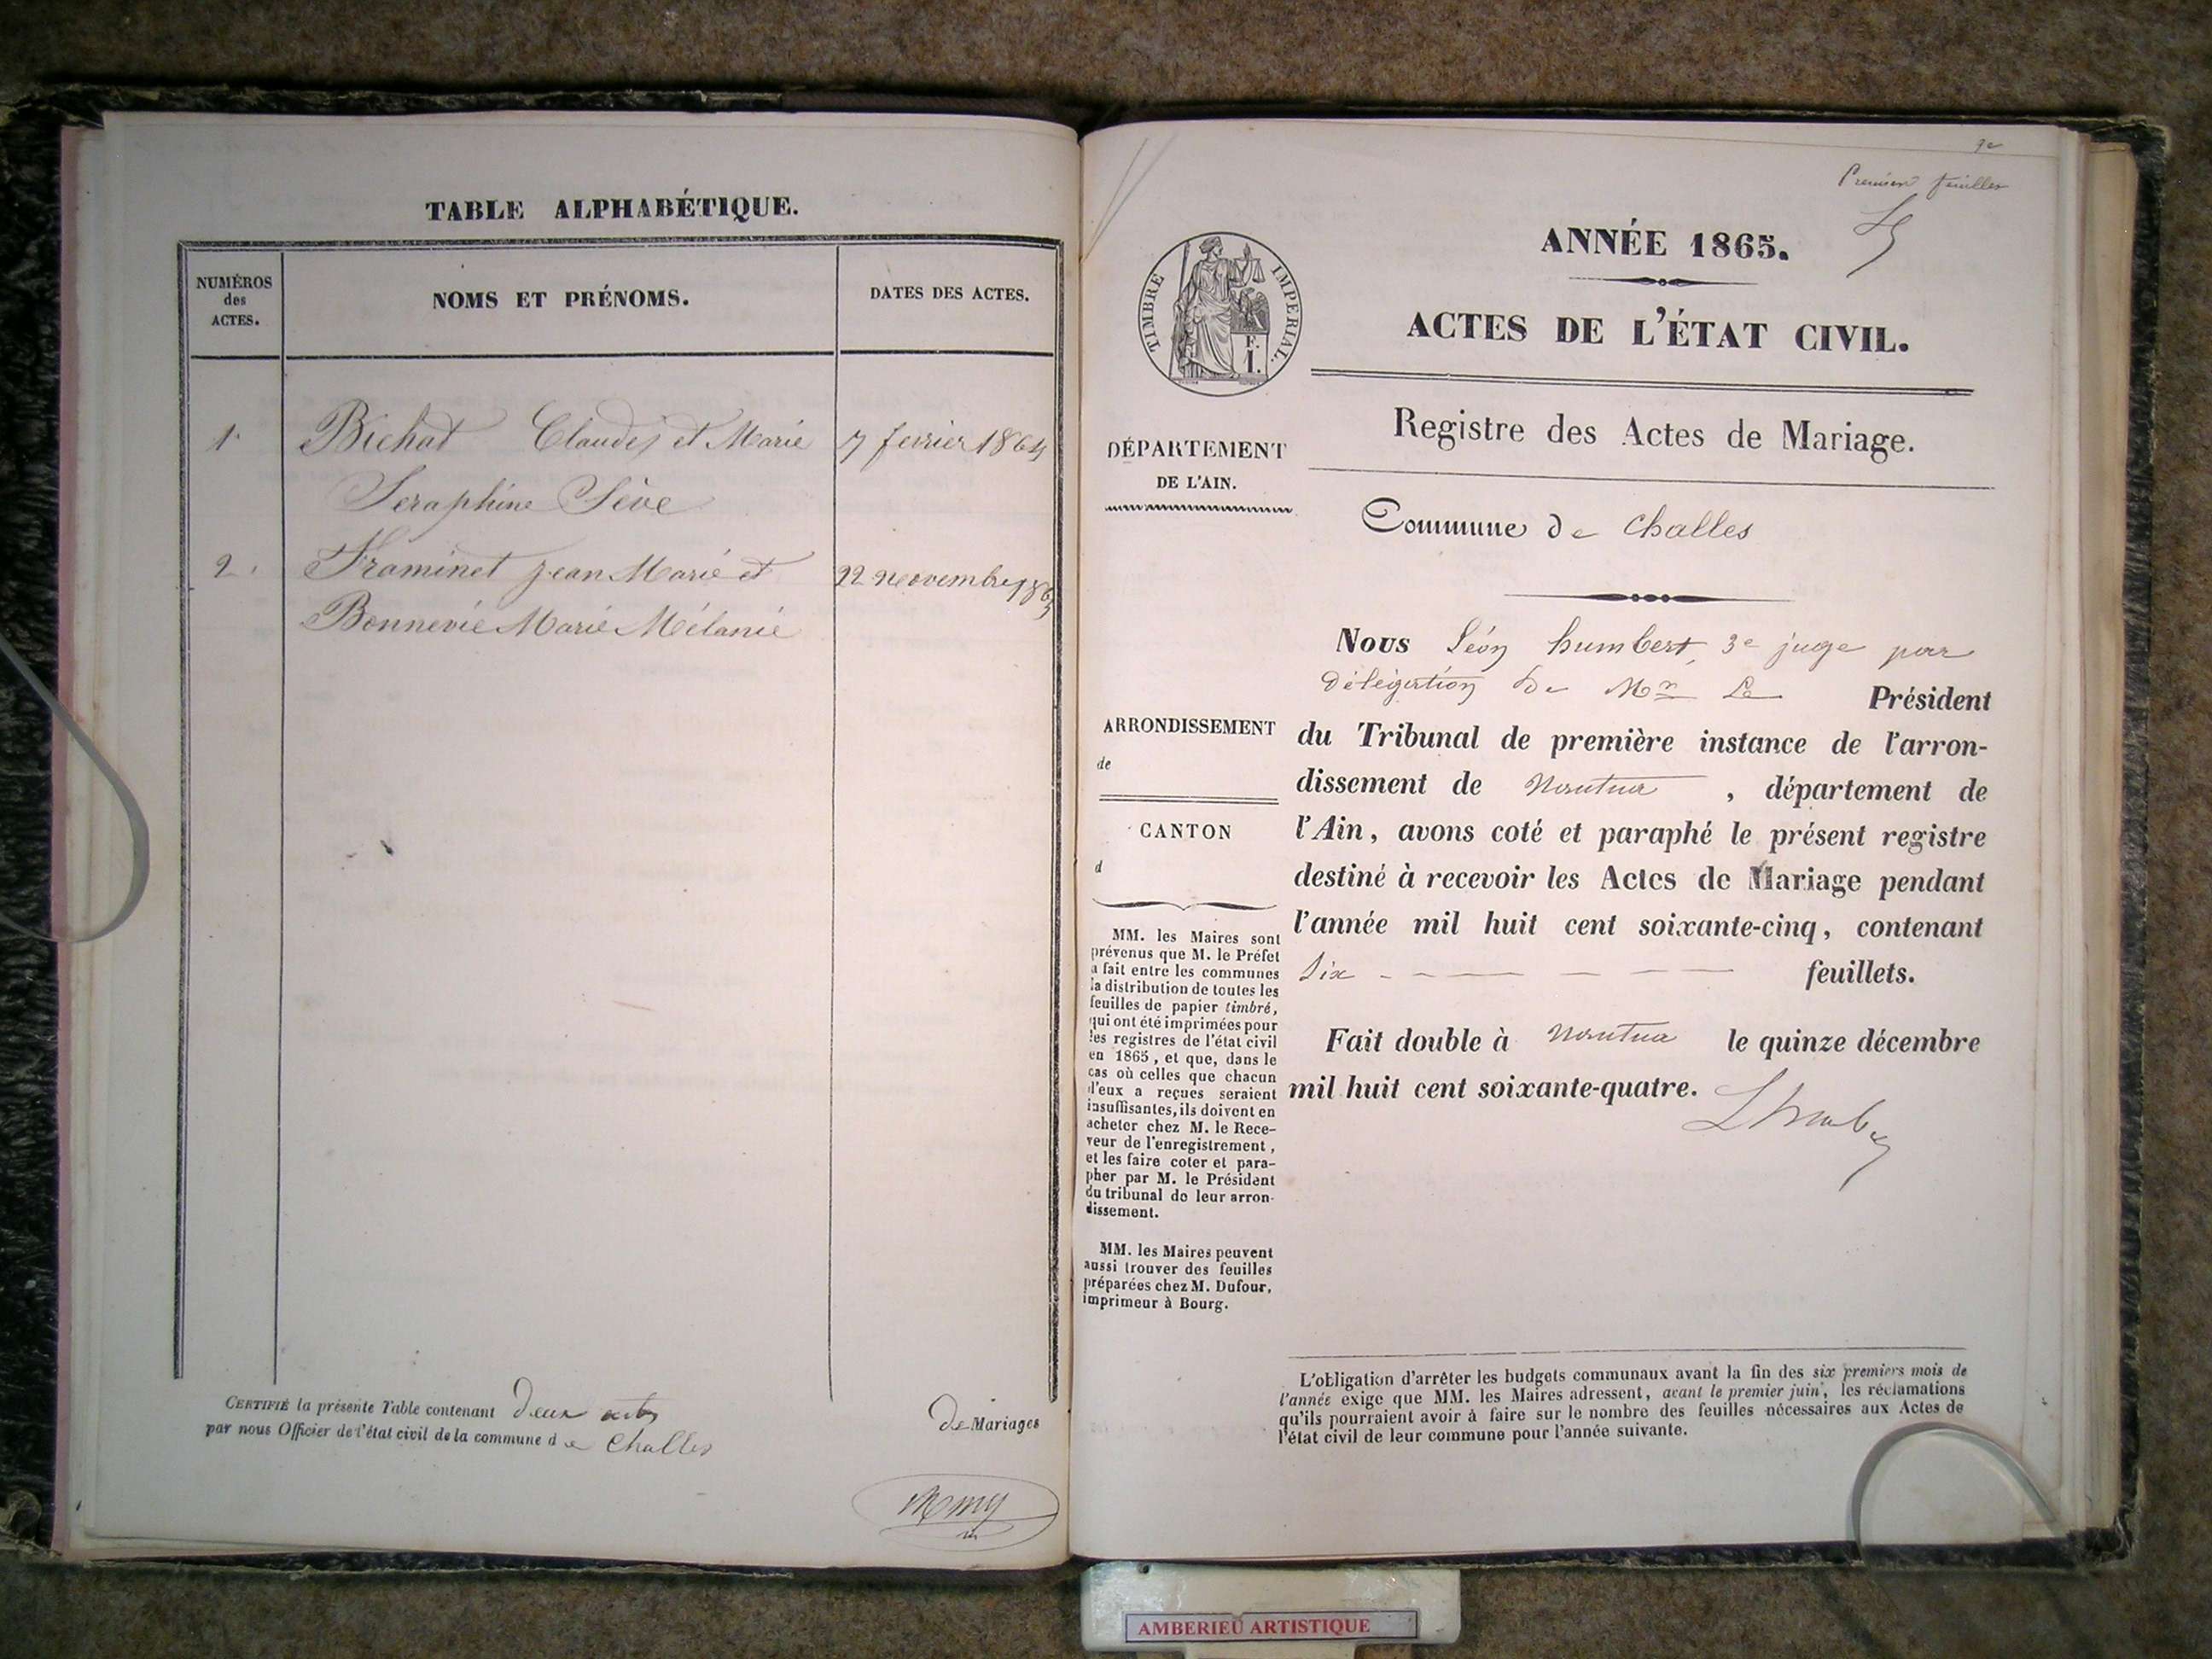 TABLE ALPHABÉTIQUE.
NUMÉROS
des
ACTES.
NOMS ET PRÉNOMS.
DATES DES ACTES.
1. Bichat Claude et Marie 7 fevrier 1864
Seraphine Sève
2. Framinet Jean Marie et 22 novembre 186
Bonnevie Marie Mélanie
CERTIFIÉ la présente Table contenant deux actes De Mariages
par nous Officier de l'état civil de la commune de Challes
9e
Premier feuillet
ANNÉE 1865.
TIMBRE IMPÉRIAL.
E.
1.
ACTES DE L'ÉTAT CIVIL.
Registre des Actes de Mariage.
DÉPARTEMENT
DE L'AIN.
Commune de Challes
Nous Léon humbert, 3e juge par
délégation de Mr Le Président
ARRONDISSEMENT
de
CANTON
d
du Tribunal de première instance de l'arron-
dissement de Nantua, département de
l'Ain, avons coté et paraphé le présent registre
destiné à recevoir les Actes de Mariage pendant
l'année mil huit cent soixante-cinq, contenant
Six feuillets.
Fait double à Nantua le quinze décembre
mil huit cent soixante-quatre.
MM. les Maires sont
prévenus que M. le Préfet
a fait entre les communes
la distribution de toutes les
feuilles de papier timbré,
qui ont été imprimées pour
les registres de l'état civil
en 1865, et que, dans le
cas où celles que chacun
d'eux a reçues seraient
insuffisantes, ils doivent en
acheter chez M. le Rece-
veur de l'enregistrement,
et les faire coter et para-
pher par M. le Président
du tribunal de leur arron-
dissement.
MM. les Maires peuvent
aussi trouver des feuilles
préparées chez M. Dufour,
imprimeur à Bourg.
L'obligation d'arrêter les budgets communaux avant la fin des six premiers mois de
l'année exige que MM. les Maires adressent, avant le premier juin, les réclamations
qu'ils pourraient avoir à faire sur le nombre des feuilles nécessaires aux Actes de
l'état civil de leur commune pour l'année suivante.
AMBERIEU ARTISTIQUE